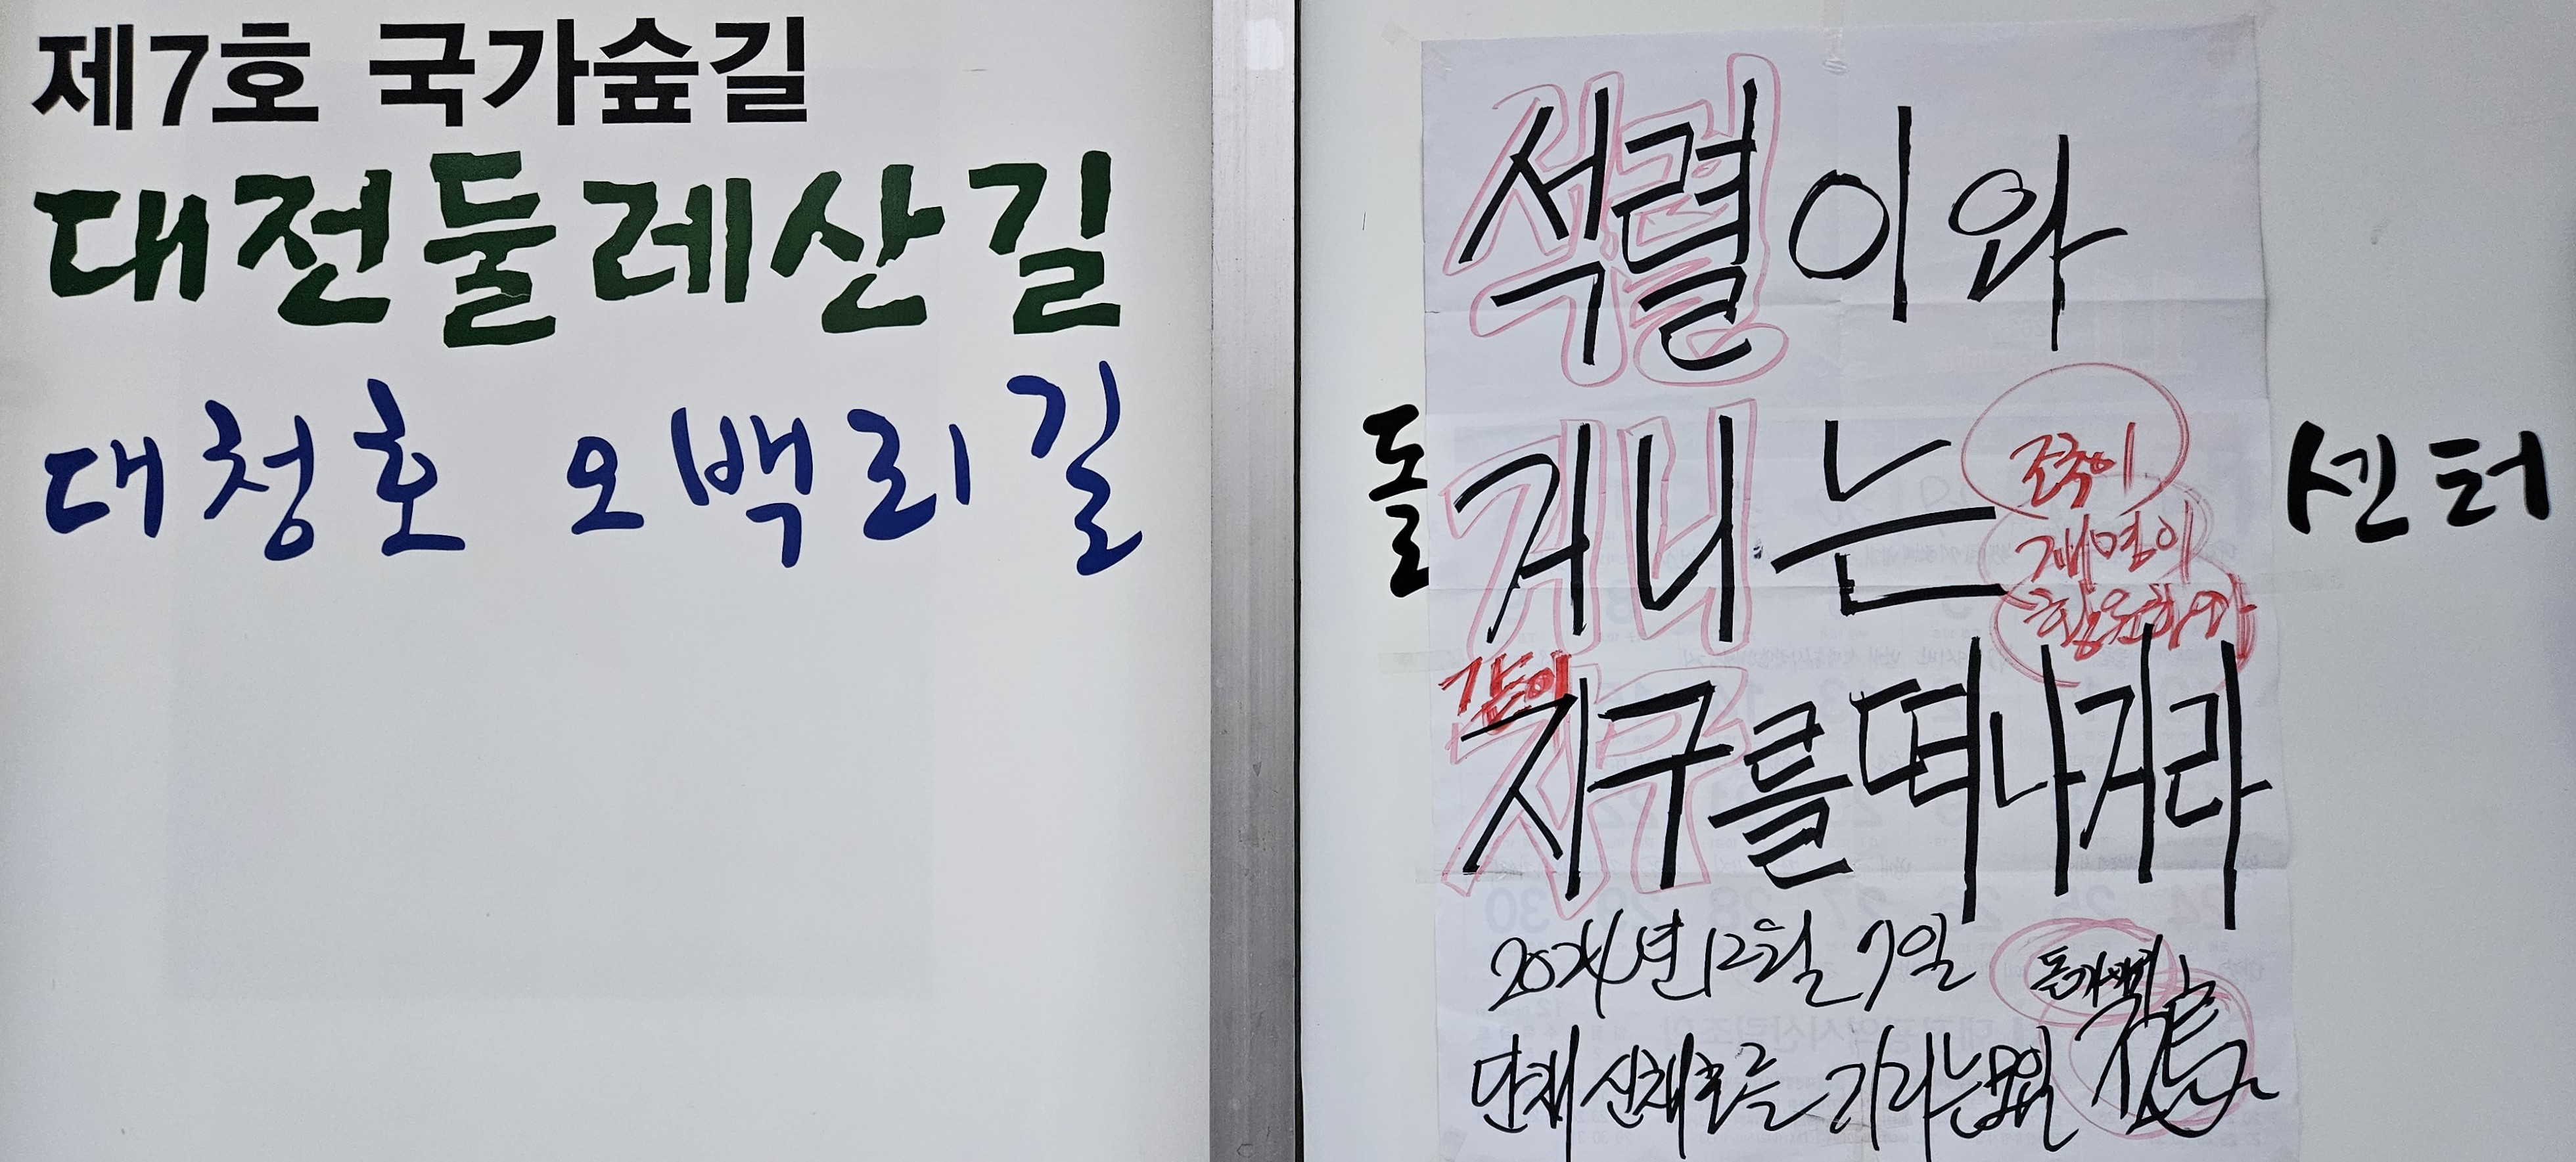 제7호 국가숲길
대전둘레산길
대청호 오백리길
돌
센터
석렬이와
거니는
조국이
재명이
같이
지구를떠나거라
2024년 12월 7일
단재 신채호를 기리는모임